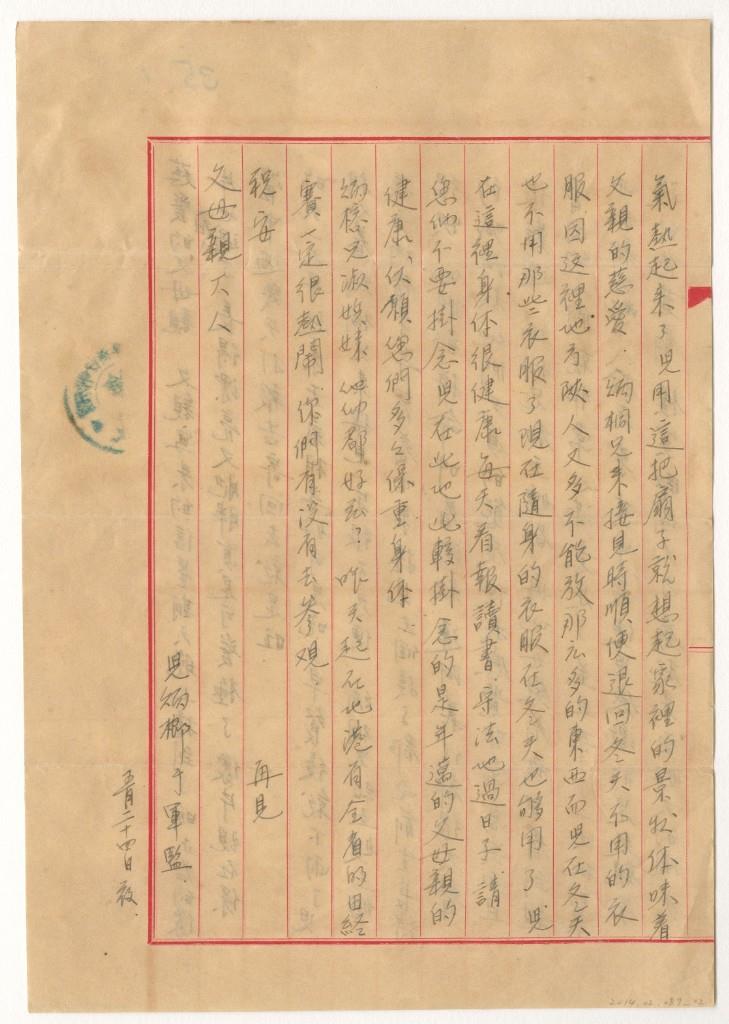 氣熱起來了兒用這把扇子就想起家裡的景狀体味着
父親的慈愛．炳桐兄來接見時順便退回冬天不用的衣
服因这裡地方陝人又多不能放那広多的東西而兒在冬天
也不用那些衣服了現在隨身的衣服在冬天也够用了兒
在這裡身体很健康每天看報讀書守法地過日子請
您们不要掛念兒在此地比較掛念的是年邁的父母親的
健康、伏願您們多々保重身体
炳榕兄淑娱妹他们都好広？昨天起在此港有全省的田経
賽一定很熱鬧你們有没有去參观
再見
祝安
父母親大人
兒炳榔于軍監．
五月二十四日夜．
2014.02.087_02